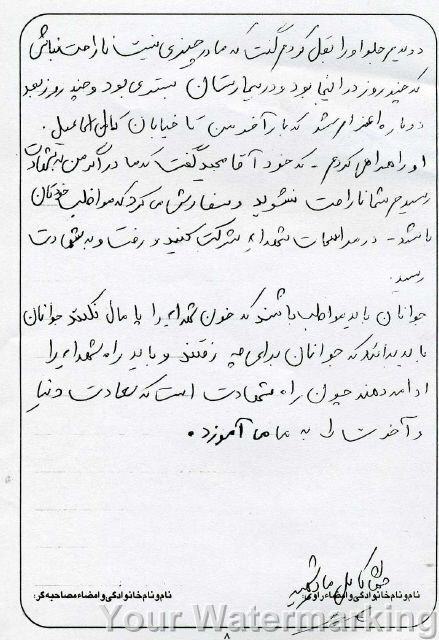 دویدم جلو او را بغل کردم گفت که مادر چیزی نیست ناراحت نباشی
که چند روز در آنجا بود و در بیمارستان بستری بود و چند روز بعد
دوباره اعزام شد که بار آخر من تا خیابان
او را همراهی کردم - که خود آقا مجید گفت که مادر اگر من به شهادت
رسیدم شما ناراحت نشوید و سفارش می کرد که مواظب خودتان
باشد - در مراسمات شهداء شرکت کنید و رفت و به شهادت
رسید.
جوانان باید مواظب باشند که خون شهداء را پامال نکنند جوانان
باید بدانند که جوانان برای چه رفتند و باید راه شهداء را
ادامه دهند چون راه شهادت است که سعادت دنیا
و آخرت را به ما می آموزد.
مادر شهید
نام و نام خانوادگی و امضاء راوی:
نام و نام خانوادگی و امضاء مصاحبه گر:
Your Watermarking
۸